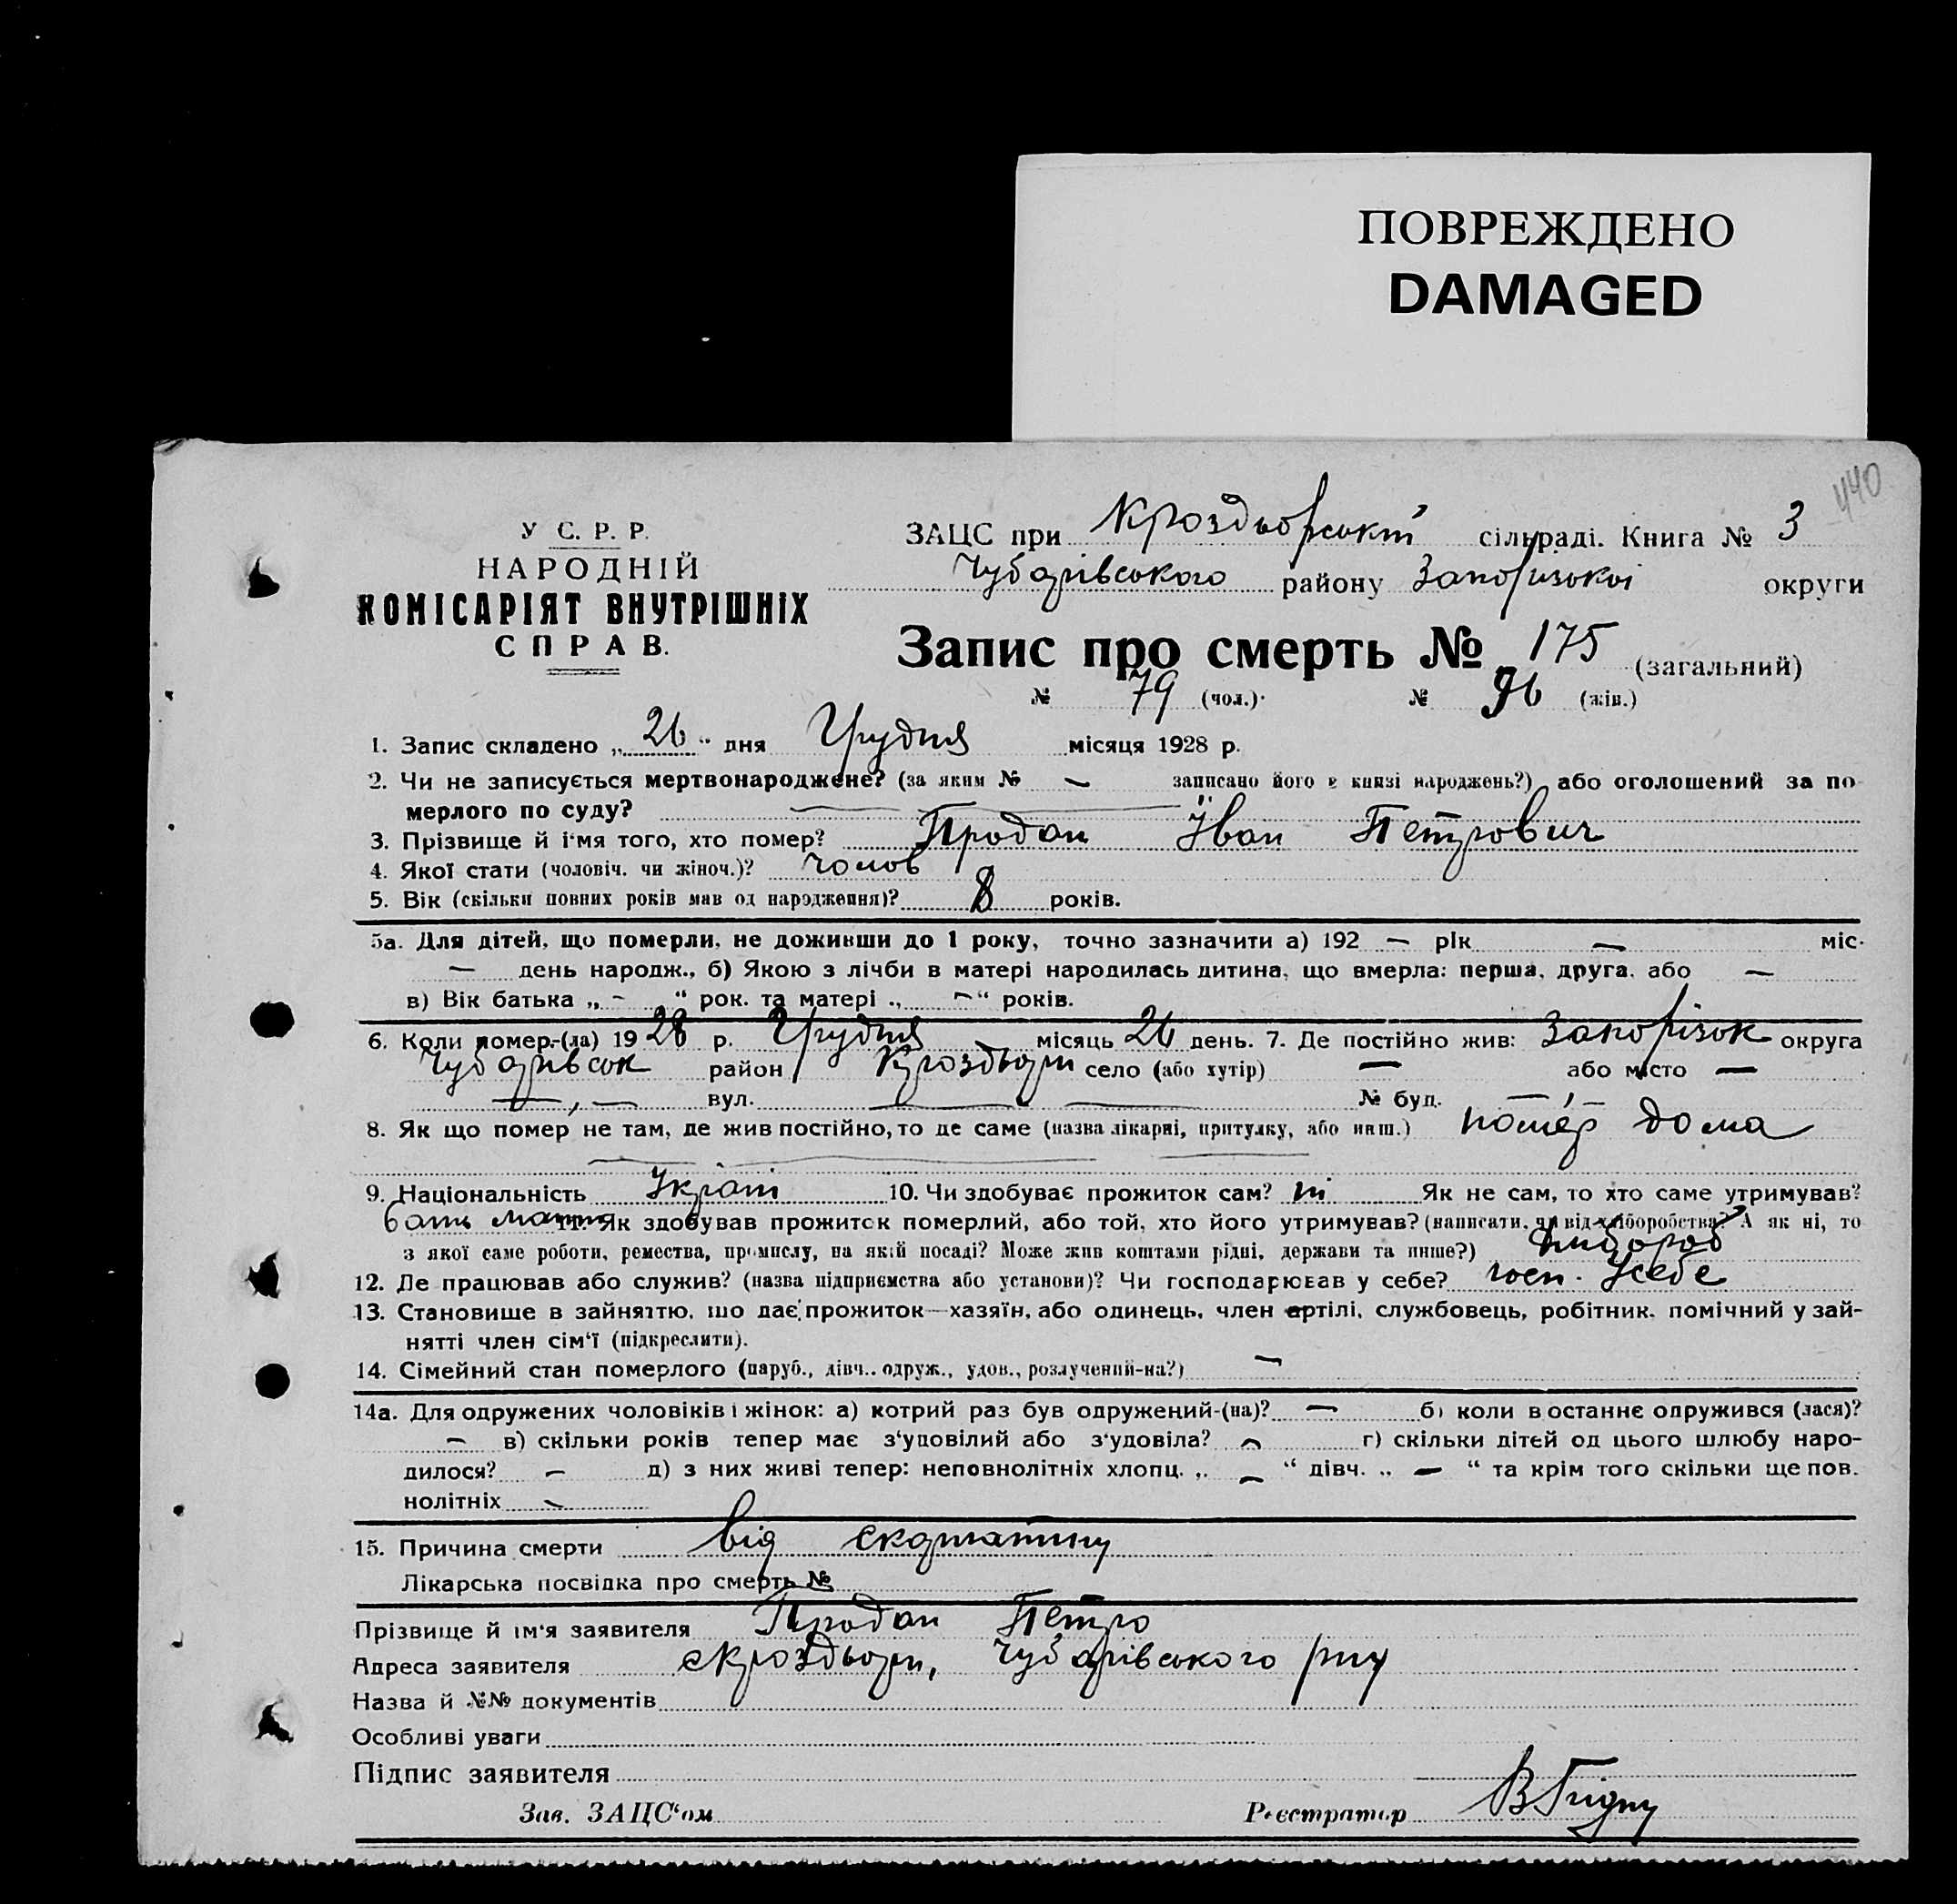 ПОВРЕЖДЕНО
DAMAGED
440
У С. Р. Р.
НАРОДНІЙ
КОМІСАРІЯТ ВНУТРІШНІХ
СПРАВ.
ЗАЦС при сільраді. Книга № 3
Чубарівського району Запорізької округи
Запис про смерть № 175 (загальний)
№ 79 (чол.) № 96 (жін.)
1. Запис складено „26“ дня Грудня місяця 1928 р.
2. Чи не записується мертвонароджене? (за яким № — записано його в книзі народжень?) або оголошений за по-
мерлого по суду?
3. Прізвище й і‘мя того, хто помер? Продан Іван Петрович
4. Якої стати (чоловіч. чи жіноч.)? чолов
5. Вік (скільки повних років мав од народження)? 8 років.
5а. Для дітей, що померли, не доживши до 1 року, точно зазначити а) 192 — рік — міс.
— день народж., б) Якою з лічби в матері народилась дитина, що вмерла: перша, друга, або —
в) Вік батька „ - “ рок. та матері „ - “ років.
6. Коли помер-(ла) 1928 р. Грудня місяць 26 день. 7. Де постійно жив: Запорізок округа
Чубарівсок район село (або хутір) — або місто —
—, — вул. — № буд. —, —
8. Як що помер не там, де жив постійно, то де саме (назва лікарні, притулку, або инш.) помер дома
9. Національність 10. Чи здобуває прожиток сам? ні Як не сам, то хто саме утримував?
11. Як здобував прожиток померлий, або той, хто його утримував? (написати, чи від хліборобства? А як ні, то
з якої саме роботи, ремества, промислу, на якій посаді? Може жив коштами рідні, держави та инше?) хлібороб
12. Де працював або служив? (назва підприємства або установи)? Чи господарював у себе? госп. усебе
13. Становище в зайняттю, що дає прожиток—хазяїн, або одинець, член артілі, службовець, робітник, помічний у зай-
нятті член сім‘ї (підкреслити).
14. Сімейний стан померлого (паруб., дівч., одруж., удов., розлучений-на?) —
14а. Для одружених чоловіків і жінок: а) котрий раз був одружений-(на)? — б) коли востаннє одружився (лася)?
— в) скільки років тепер має з‘удовілий або з‘удовіла? — г) скільки дітей од цього шлюбу наро-
дилося? — д) з них живі тепер: неповнолітніх хлопц. „ — “ дівч. „ — “ та крім того скільки ще пов.
нолітніх —
15. Причина смерти від скарлатини
Лікарська посвідка про смерть №
Прізвище й ім‘я заявителя Продан Петро
Адреса заявителя Чубарівського р-ну
Назва й №№ документів
Особливі уваги
Підпис заявителя
Зав. ЗАЦС‘ом Реєстратор